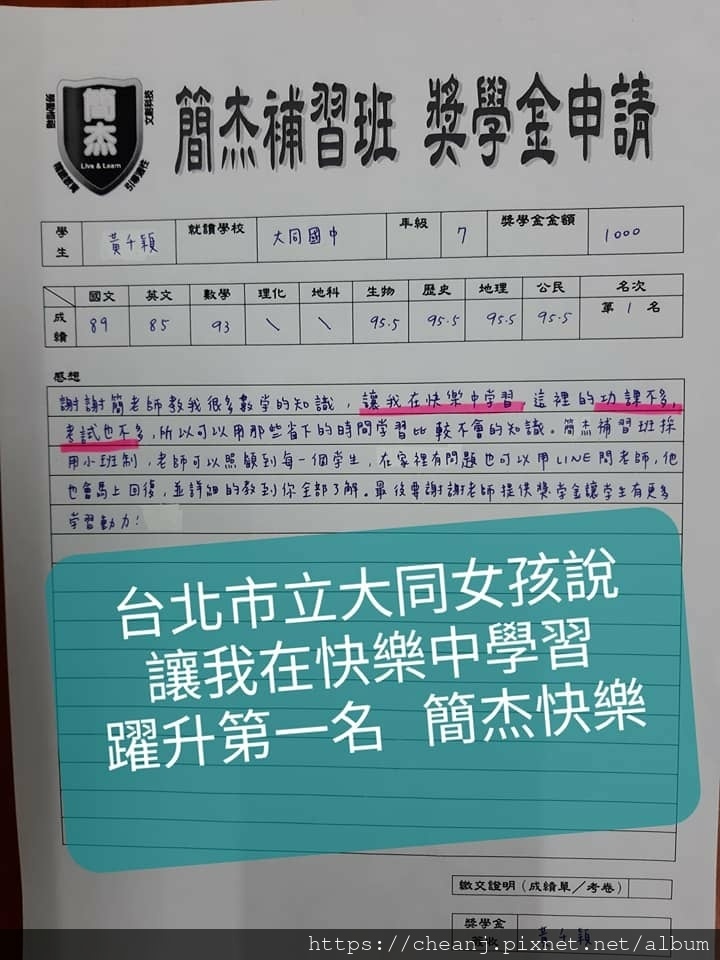 簡杰
Live & Learn
簡杰補習班 獎學金申請
學生 黃千穎 就讀學校 大同國中 年級 7 獎學金金額 1000
國文 英文 數學 理化 地科 生物 歷史 地理 公民 名次
成績 89 85 93 \ \ 95.5 95.5 95.5 95.5 第 1 名
感想
謝謝簡老師教我很多數學的知識,讓我在快樂中學習,這裡的功課不多,
考試也不多,所以可以用那些省下的時間學習比較不會的知識。簡杰補習班採
用小班制,老師可以照顧到每一個學生,在家裡有問題也可以用LINE問老師,他
也會馬上回復,並詳細的教到你全部了解。最後要謝謝老師提供獎學金讓學生有更多
學習動力!
台北市立大同女孩說
讓我在快樂中學習
躍升第一名 簡杰快樂
繳交證明(成績單/考卷)
獎學金
黃千穎
https://cheanj.pixnet.net/album